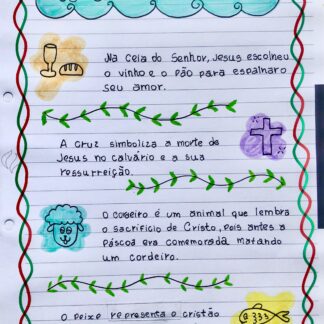 Na Ceia do Senhor, Jesus escolheu
o vinho e o pão para espalhar o
seu amor.
A Cruz simboliza a morte de
Jesus no calvário e a sua
ressurreição.
O cordeiro é um animal que lembra
o sacrifício de Cristo, pois antes a
Páscoa era comemorada matando
um cordeiro.
O peixe representa o cristão